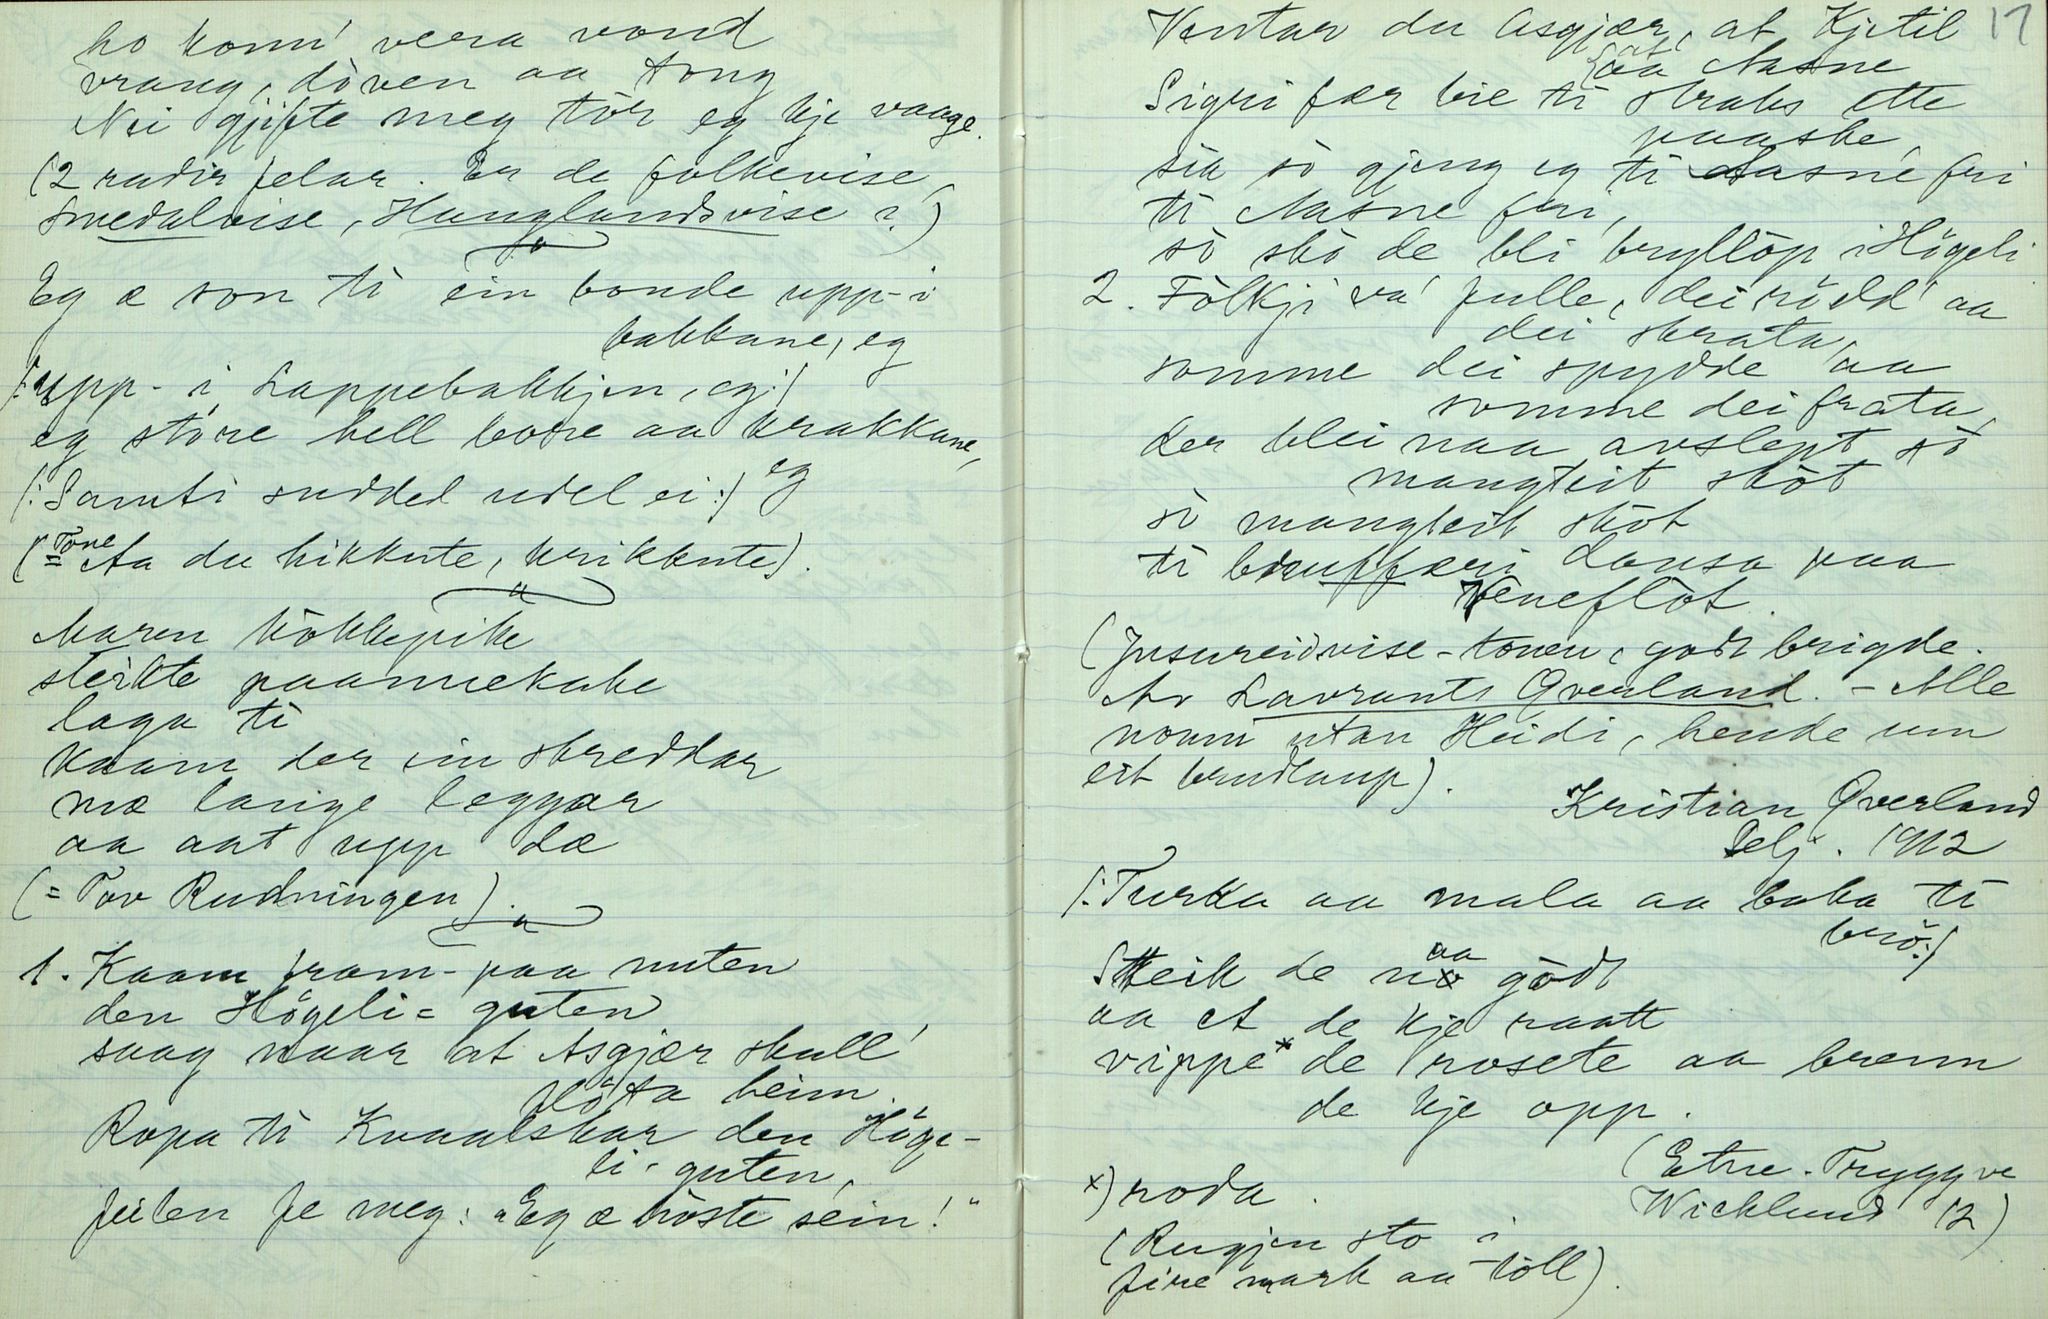 ho konn' vera vond
vrang, döven aa tong
Nei gjifte meg tör eg kje vaage.
(2 radir felar. Er de folkevise
Smedalvise, Hauglandsvise?)
Eg æ son ti ein bonde upp-i
bakkane, eg
/: upp-i Lappebakkjen, eg :/
eg störe hell bore aa krakkane,
eg
(: Samti suddel udel ei :/
(= Tone Aa du kikkute, krikkute).
Maren kökkepike
steikte paannekake
laga ti
kaam der ein skreddar
mæ lange leggjar
aa aat upp dæ
(= Tov Rudningen).
1. Kaam fram-paa nuten
den Högeli= guten
saag naar at Asgjær skull'
flöta heim.
Ropa ti Kvaalskar den Höge-
li-guten,
feilen fe meg: "Eg æ tröste sein!"
17
Ventar du Asgjær, at Kjetil
aa Aasne
Sigri fær bie ti straks ette
paaske,
sia so gjeng eg ti Aasne fri
ti Aasne fri,
so sko de bli bryllöp i Högeli
2. Fölkji va' fulle, dei rödd' aa
dei skrata,
somme dei spydde aa
somme dei frata,
der blei naa avslept so
mangteit sköt
so mangteit sköt
ti bruffæri dansa paa
Veneflöt.
(Jusureidvise-tonen, godt brigde.
Av Lavrants Överland. - Alle
nomni utan Heidi, hende um
eit brudlaup).
Kristian Øverland
Selj. 1912
/: Turka aa mala aa baka ti
brö :/
Steik de naa godt
aa et de kje raatt
vippe* de rosete aa brenn
de kje opp.
(Etne. Tryggve
Wicklund 12)
x) roda.
(Rugjen sto i
fire mark aa töll).